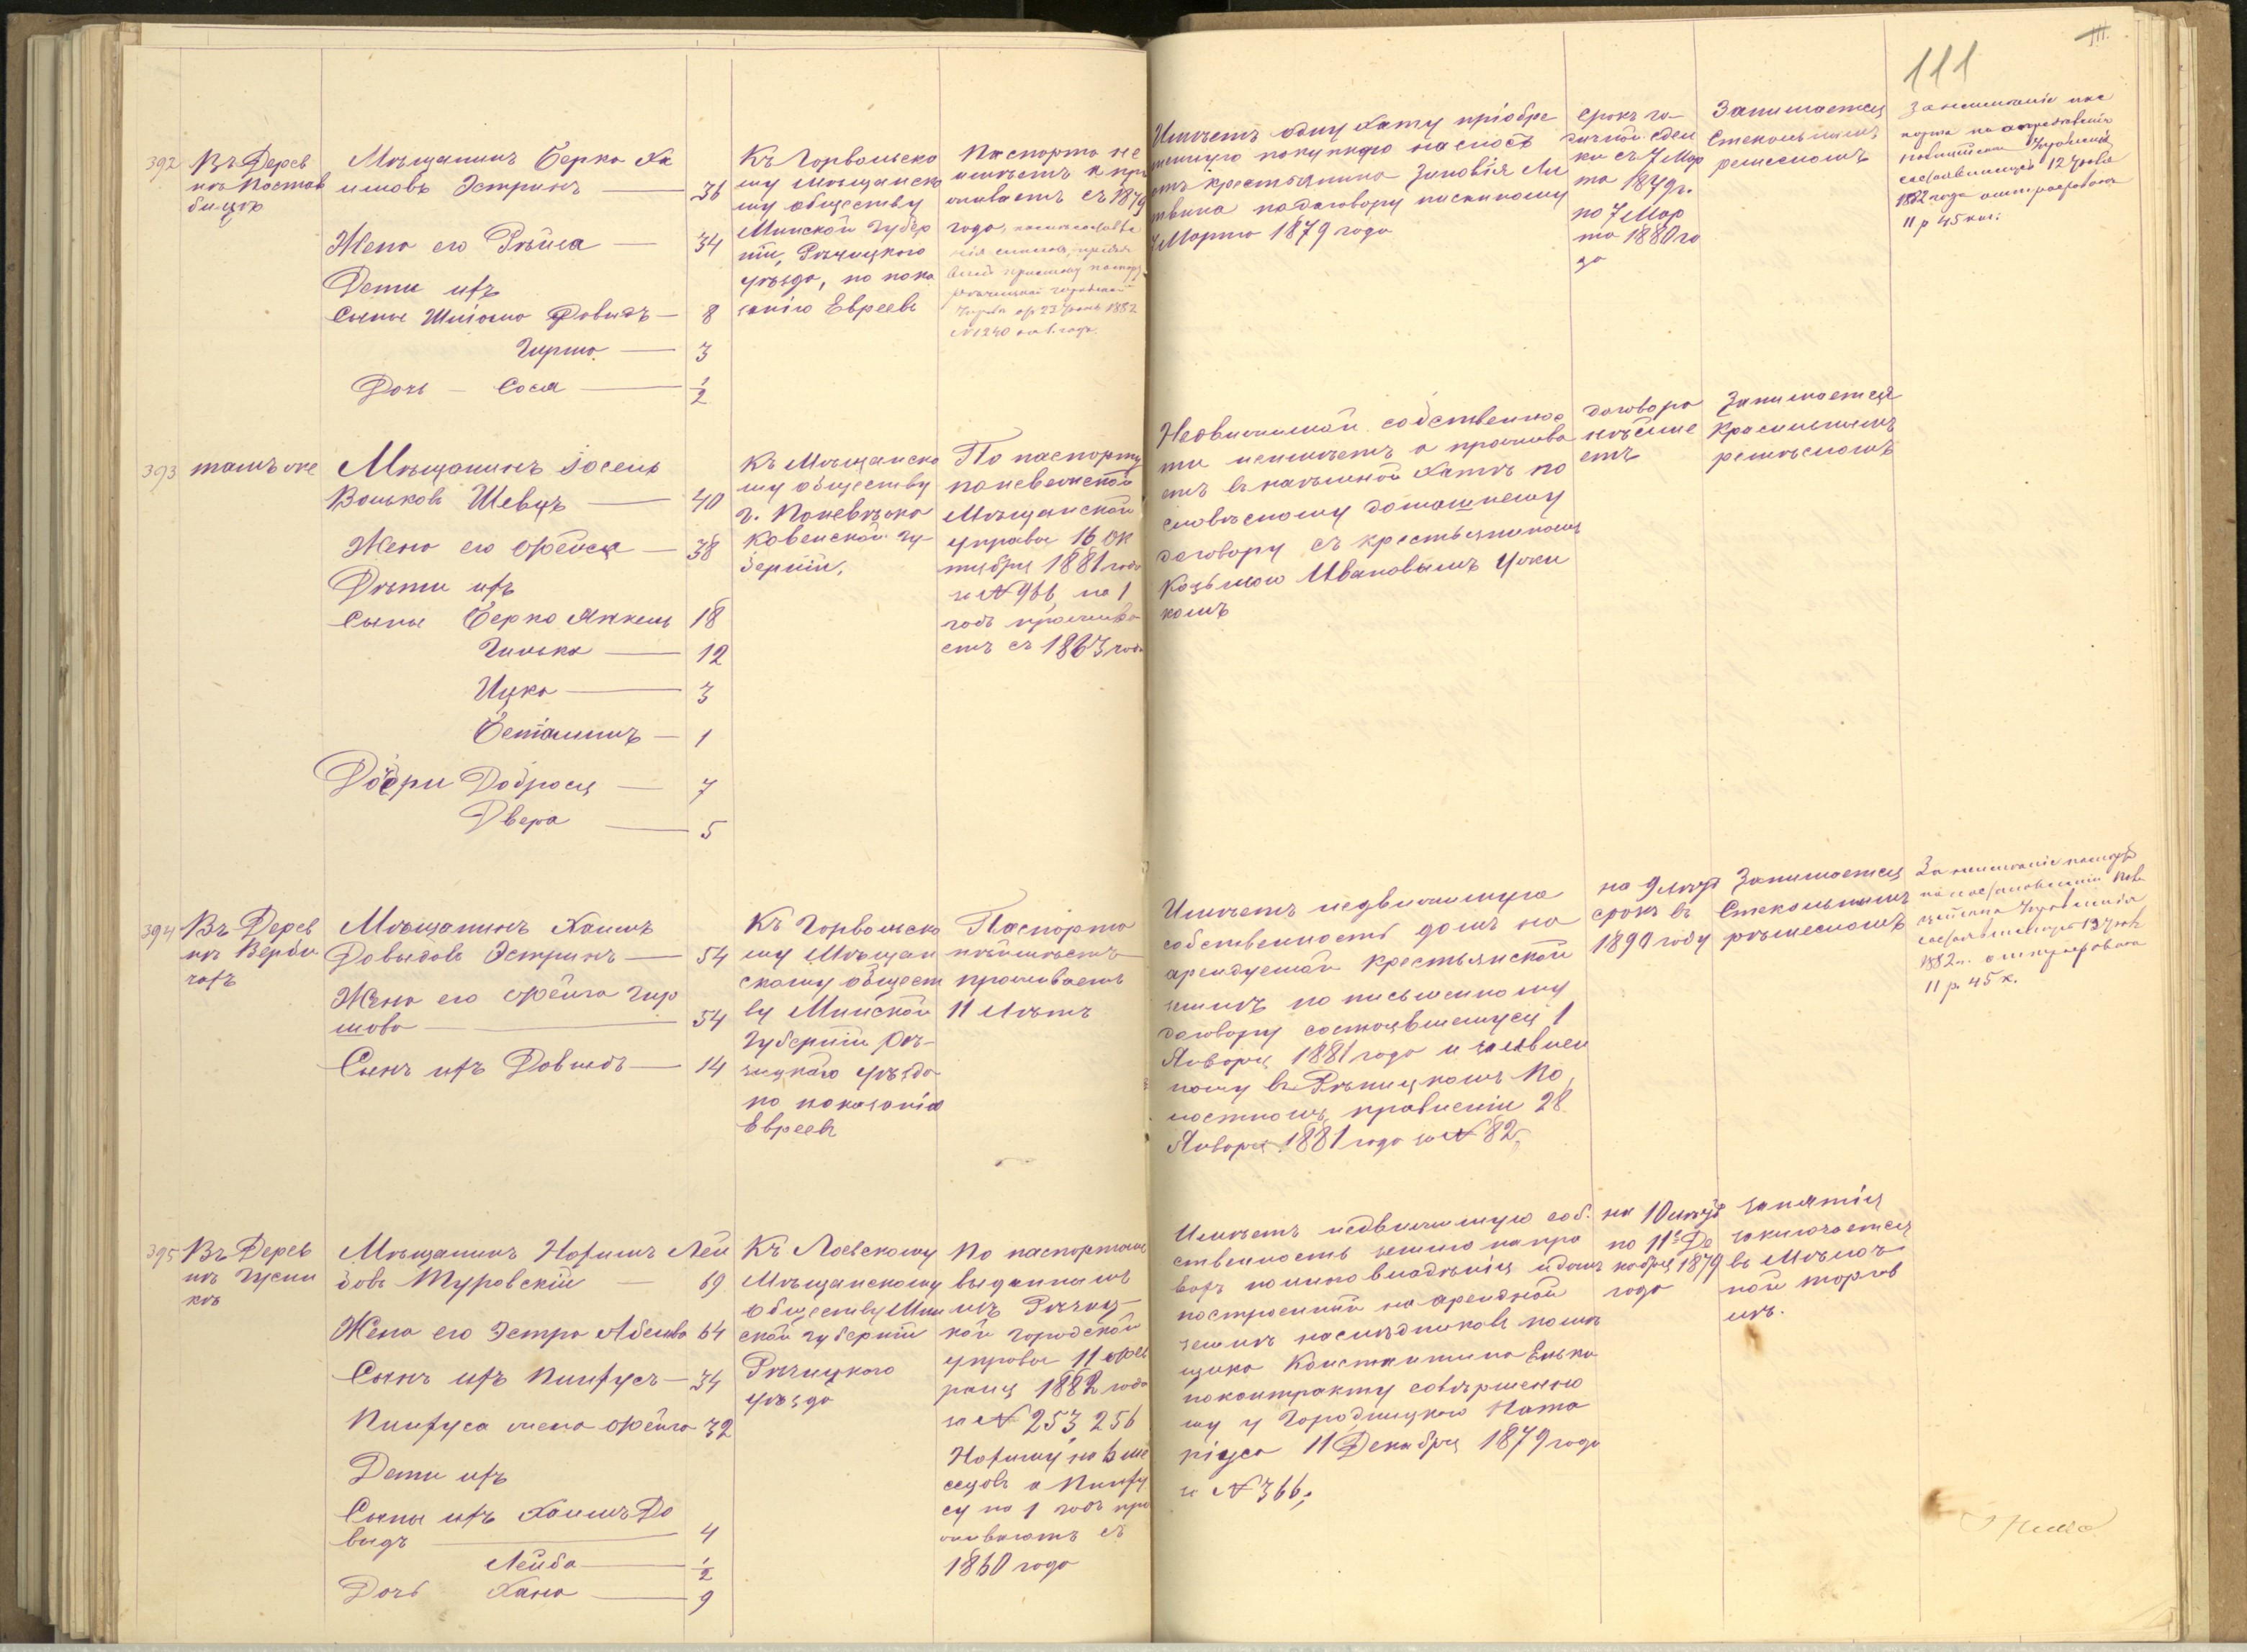 111
392
Въ Дерев
нѣ Костов
бицѣ
Мѣщанинъ Берка Ха
имовъ Эстринъ — 36
Жена его Рѣйза — 34
Дети ихъ
Сыны Шлiома Довидъ — 8
Гирша — 3
Дочь — Сося — 1/2
Къ Горвольско
му мѣщанско
му обществу
Минской Губер
нiи, Рѣчицкого
уѣзда, по пока
занiю Еврeевъ
Паспорта не
имѣетъ и про
живаетъ съ 1879
года,
23 Iюня 1882
№ 1240 на 1 годъ.
Имѣетъ одну хату прiобре
тенную покупкою на сносъ
отъ крестьянина Зиновiя Ли
твина по договору писанному
7 Марта 1879 года
Срокъ го
дичный
съ 7 Мар
та 1879 г.
по 7 Мар
та 1880 го
да
Занимается
Стекольнымъ
ремесломъ
За неимѣнiе пас
порта по постановленiю
Полицейск. Управленiя
состоявшемуся 12 Iюня
1882 года оштрафованъ
11 р 45 коп:
393
тамъ же
Мѣщанинъ Iосель
Вольковъ Шевцъ — 40
Жена его Фейся — 38
Дѣти ихъ
Сыны Берко Янкель 18
Гилька — 12
Ицка — 3
Бенiаминъ — 1
Дочери Доброся — 7
Двера — 5
Къ Мѣщанско
му обществу
г. Поневѣжа
Ковенской гу-
бернiи,
По паспорту
поневежской
Мѣщанской
управы 16 Ок
тября 1881 года
за № 966, на 1
годъ прожива
етъ съ 1863 года
Недвижимой собственнос
ти неимѣетъ а прожива
етъ въ наемной хатѣ по
словесному домашнему
договору съ крестьяниномъ
Козьмою Ивановымъ
комъ
договора
неимѣ
етъ
Занимается
Красильнымъ
ремѣсломъ
394
Въ Дерев
нѣ Верби
чахъ
Мѣщанинъ Хаимъ
Довыдовъ Эстринъ — 54
Жена его Фейга Гир
шова — 54
Сынъ ихъ Довидъ — 14
Къ Горвольско
му Мѣщан
скому общест
ву Минской
Губернiи Рѣ-
чицкаго уѣзда
по показанiю
Евреевъ
Паспорта
неимѣетъ
проживаетъ
11 Лѣтъ
Имѣетъ недвижимую
собственность домъ на
арендуемой крестьянской
землѣ по письменному
договору состоявшемуся 1
Января 1881 года и заявлен
ному въ Рѣпицкомъ Во
лостномъ правленiи 28
Января 1881 года за № 82,
на 9 лѣтъ
срокъ въ
1890 году
Занимается
Стекольнымъ
ремесломъ
За неимѣнiе паспорта
по постановленiю Поли
цейскаго Управленiя
состоявшемуся 12 Iюня
1882 г. оштрафованъ
11 р. 45 к.
395
Въ Дерев
нѣ Гусин
кѣ
Мѣщанинъ Нохимъ Лей
бовъ Туровскiй — 69
Жена его Эстра Абелева 64
Сынъ ихъ Пинхусъ — 34
Пинхуса жена Фейга 32
Дети ихъ
Сыны ихъ Хаимъ До
видъ — 4
Лейба — 1/2
Дочь Хана — 9
Къ Лоевскому
Мѣщанскому
Обществу Мин
ской губернiи
Рѣчицкого
уѣзда
По паспортамъ
выданнымъ
изъ Рѣчиц-
кой городской
управы 11 Фев
раля 1882 года
за № 253, 256
Нохиму на 6 мѣ
сяцовъ а Пинху
су на 1 годъ про
живаютъ съ
1860 года
Имѣетъ недвижимую соб.
ственность землю на пра
вахъ полного владѣнiя и домъ
построенный на арендной
землѣ наслѣдниковъ помѣ
щика Константина Енько
по контракту совершенно
му у Городницкаго Нота
рiуса 11 Декабря 1879 года
за № 366;
на 10 лѣтъ
по 11е Де
кабря 1879
года
занятiя
заключается
въ Мѣлоч
ной торгов
лѣ.